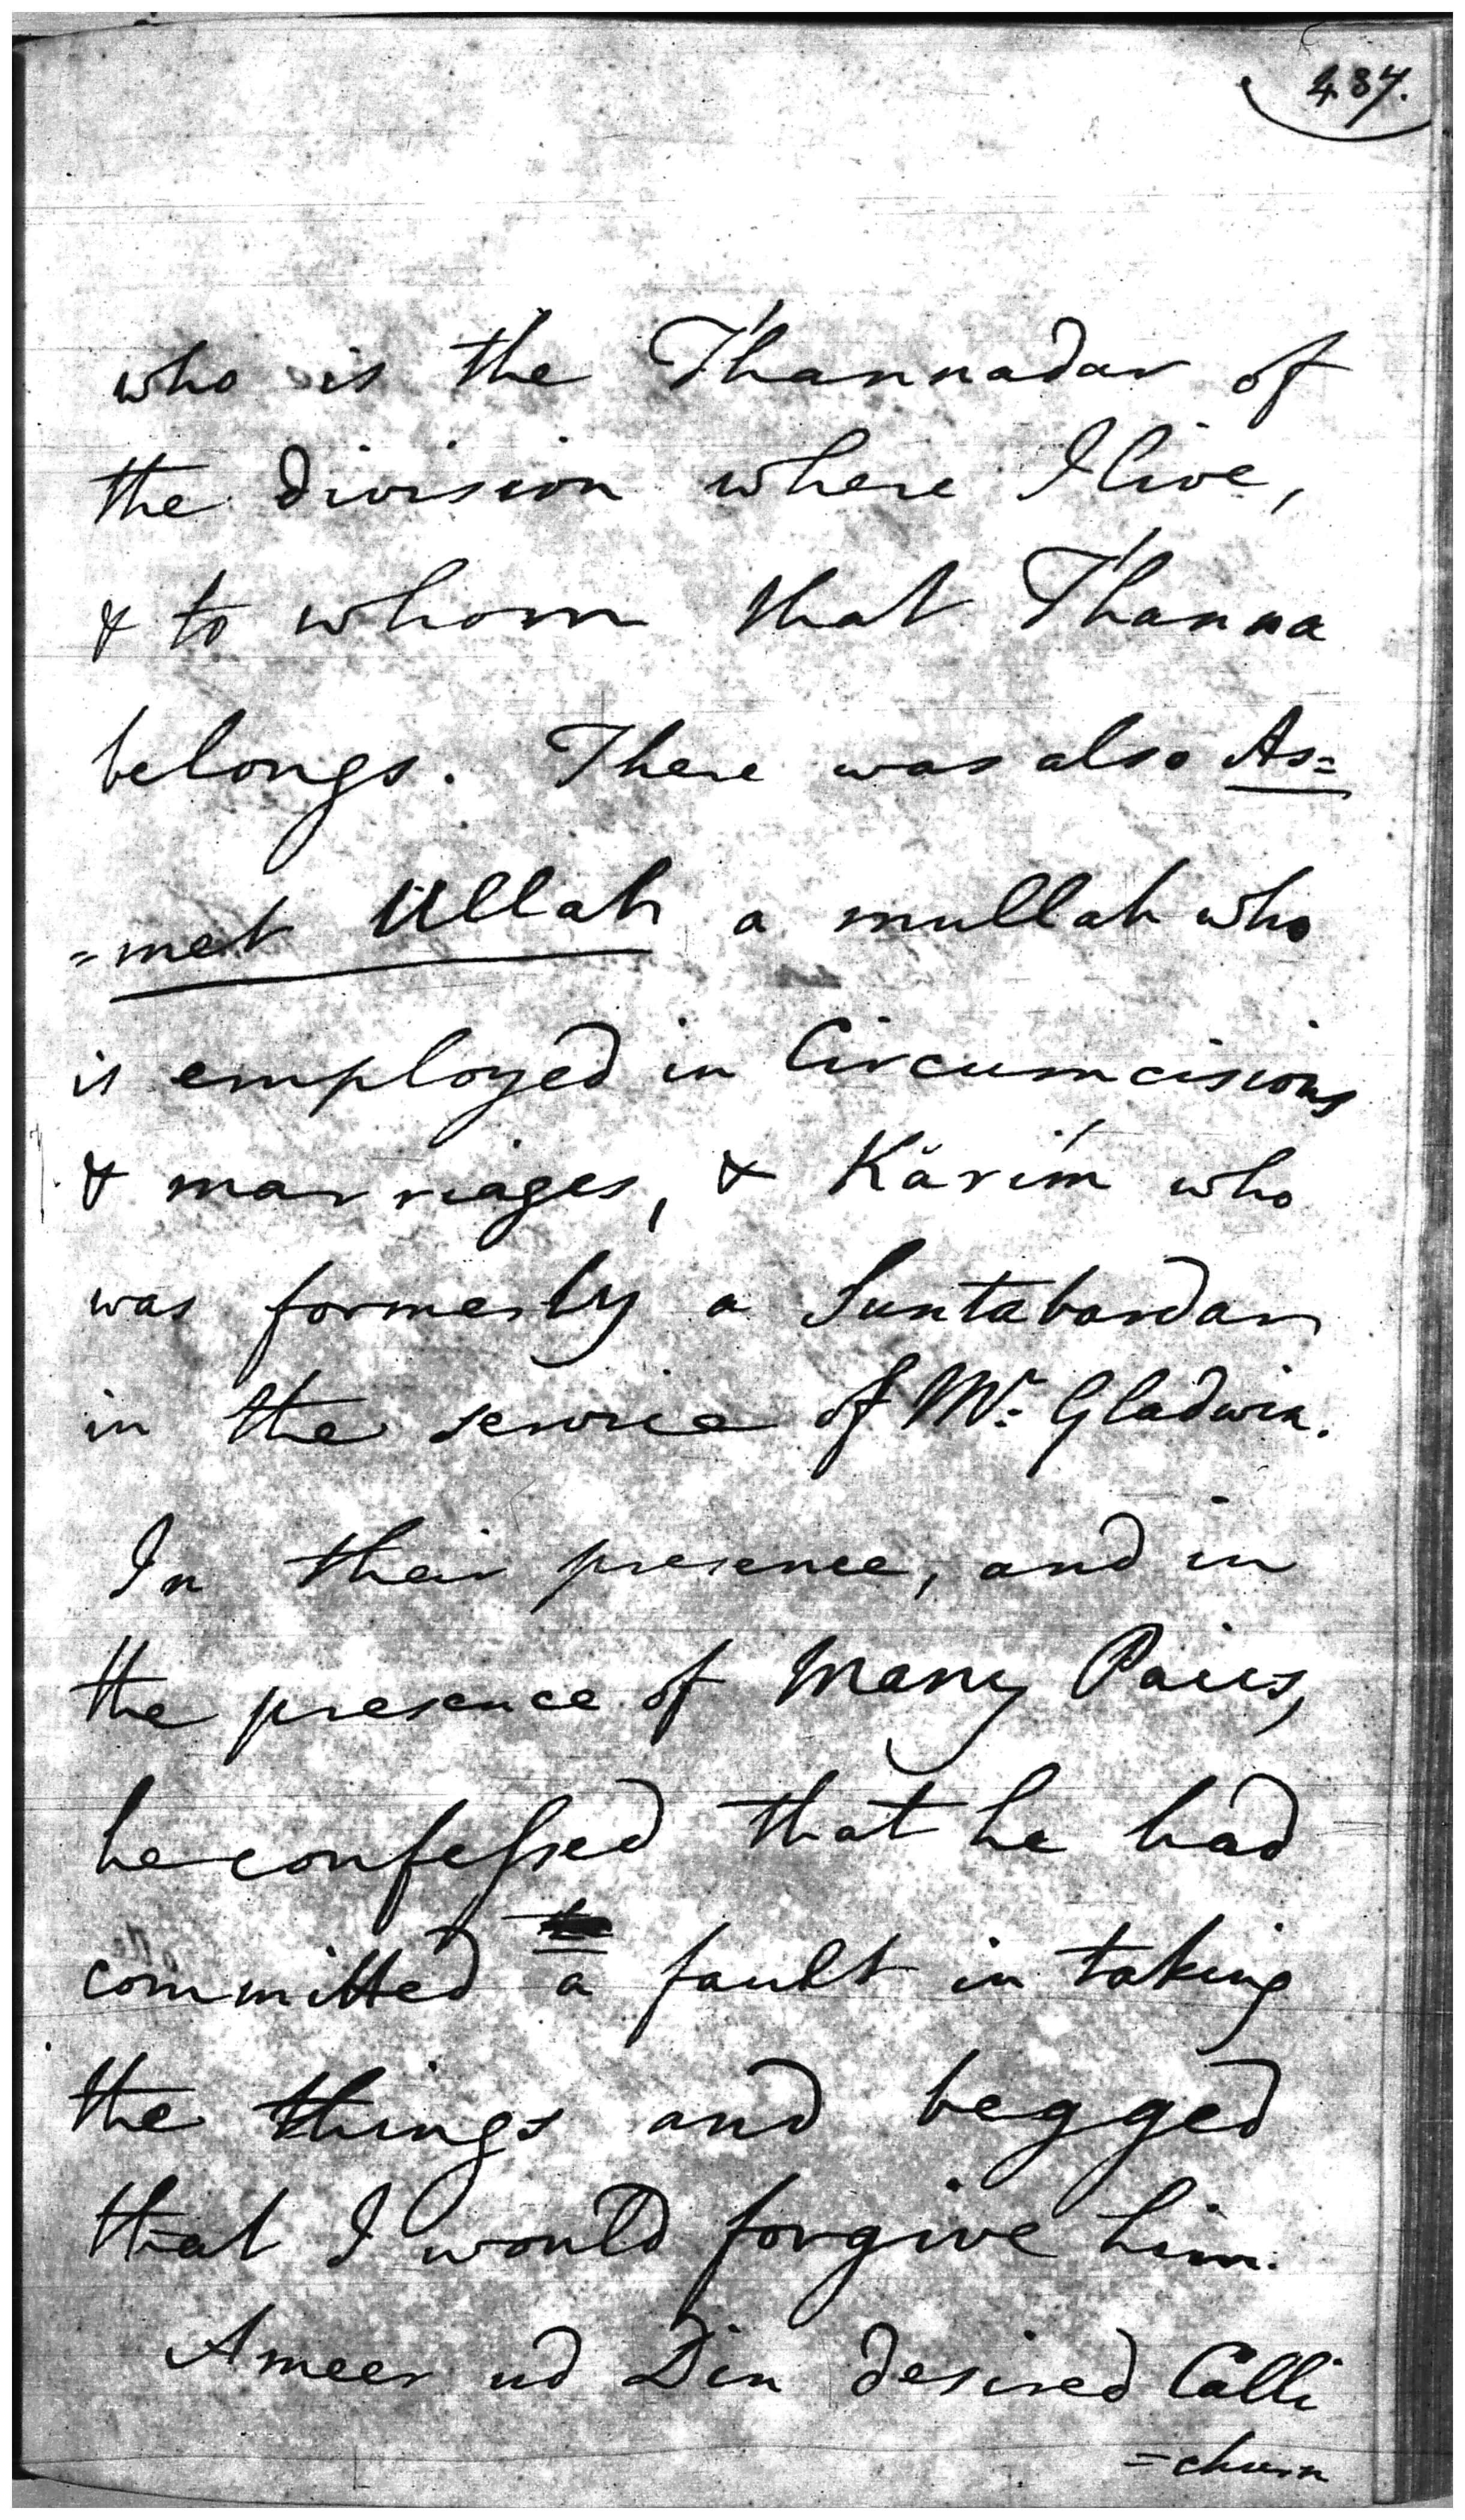 487.
who is the Thannadar of
the division where I live,
& to whom that Thanna
belongs. There was also As=
=met Ullah a mullah who
is employed in Circumcisions
& marriages, & Kärím who
was formerly a Suntabardar
in the service of Mr: Gladwin.
In their presence, and in
the presence of many Paiks,
he confessed that he had
committed a fault in taking
the things and begged
that I would forgive him.
Ameer ud Din desired Calli
=churn